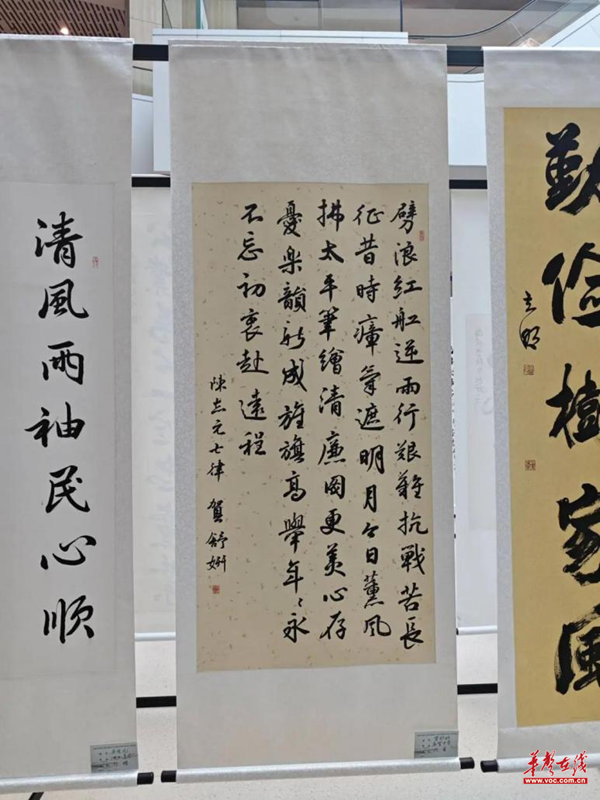 劈浪红船逆雨行艰难抗戰苦長
征昔時瘴氣遮明月今日薰风
拂太平筆繪清廉圖更美心存
憂樂韻新成旌旗高舉年〻永
不忘初衷赴遠程
陳志元七律 賀舒姗
清風兩袖民心順
勤儉樹家風
立明
華聲在线
voc.com.cn